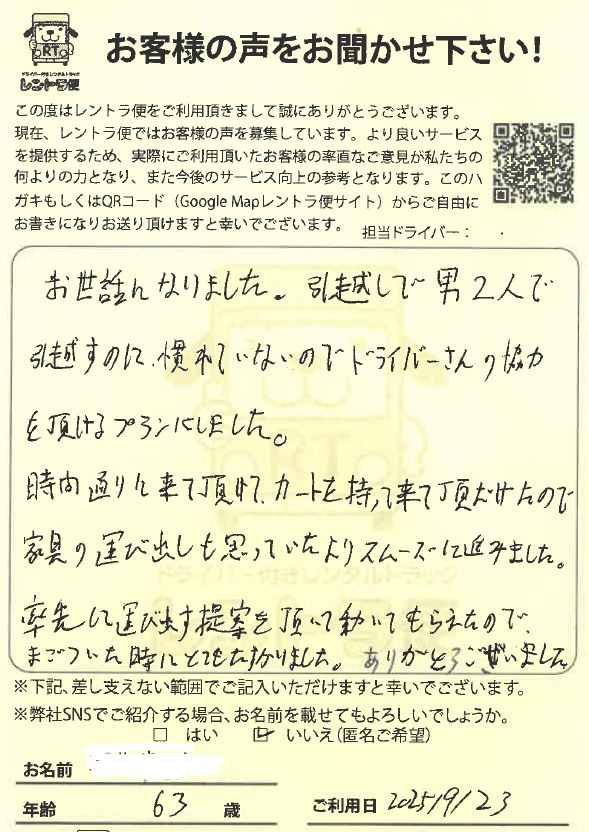 お客様の声をお聞かせ下さい！
RT
ドライバー付きレンタルトラック
レントラ便
この度はレントラ便をご利用頂きまして誠にありがとうございます。
現在、レントラ便ではお客様の声を募集しています。より良いサービス
を提供するため、実際にご利用頂いたお客様の率直なご意見が私たちの
何よりの力となり、また今後のサービス向上の参考となります。このハ
ガキもしくはQRコード（Google Mapレントラ便サイト）からご自由に
お書きになりお送り頂けますと幸いでございます。
担当ドライバー：
お世話になりました。引越しで男2人で
引越すのに、慣れていないのでドライバーさんの協力
を頂けるプランにしました。
時間通りに来て頂けて、カートを持って来て頂だけたので
家具の運び出しも思っていたよりスムーズに進みました。
率先して運び出す提案を頂いて動いてもらえたので、
まごついた時にとてもたすかりました。ありがとうございました
RT
ドライバー付きレンタルトラック
※下記、差し支えない範囲でご記入いただけますと幸いでございます。
※弊社SNSでご紹介する場合、お名前を載せてもよろしいでしょうか。
□ はい ☑ いいえ(匿名ご希望)
お名前
年齢 63 歳 ご利用日 2025/9/23